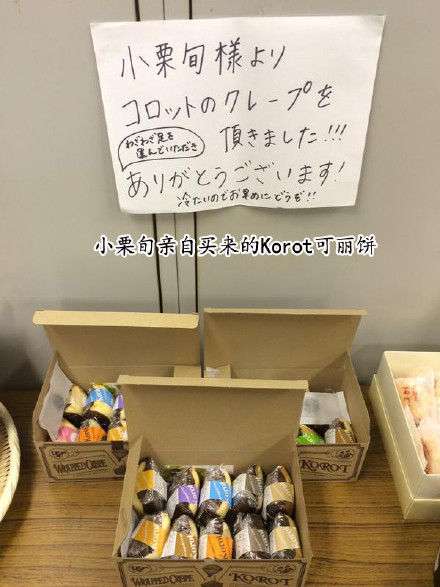 小栗旬様より
コロットのクレープを
わざわざ足を
運んでいただき
頂きました!!!
ありがとうございます!
冷たいのでお早めにどうぞ!!
小栗旬亲自买来的Korot可丽饼
WRAPPED CREPE
KOROT
WRAPPED CREPE
KOROT